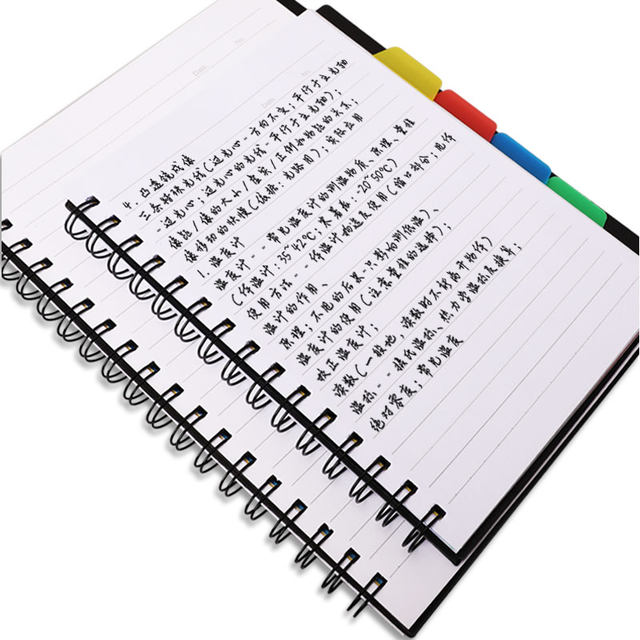 Date. No.
Date. No.
4. 凸透镜成像
三条特殊光线(过光心:方向不变;平行于主光轴
:过焦心;过光心的光线,平行于主光轴);
像距/像的大小/虚实/正倒和物距的关系;
像移动的快慢(依据:光路图);实际应用
1. 温度计
温度计--常见温度计的测温物质、原理、量程
(体温计:35~42℃;寒暑表:-20~50℃)
使用方法--体温计构造及使用(缩口
温计的作用、
原理;不甩的后果-只影响测低温)、
温度计的使用(注意量程的选择);
校正温度计;
读数(一般地,读数时不能离开物体)
温标--摄氏温标、热力学温标及换算;
绝对零度;常见温度